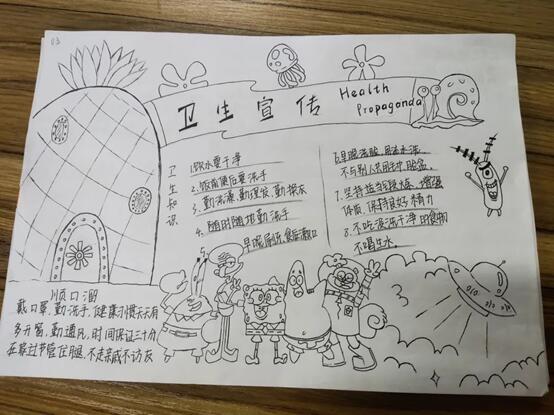 03
卫生宣传
Health
Propaganda
卫生知识
1.饮水要干净
2.饭前便后要洗手
3.勤洗澡,勤理发,勤换衣
4.随时随地勤洗手
5.早晚刷牙,食后漱口
6.早晚洗脸,用流水洗,
不与别人共用巾、脸盆,
7.坚持适当锻炼,增强
体质,保持良好精力
8.不吃没洗干净的食物
不喝生水.
顺口溜
戴口罩,勤洗手,健康习惯天天有
多开窗,勤通风,时间保证三十分
在家过节管住腿,不走亲戚不访友